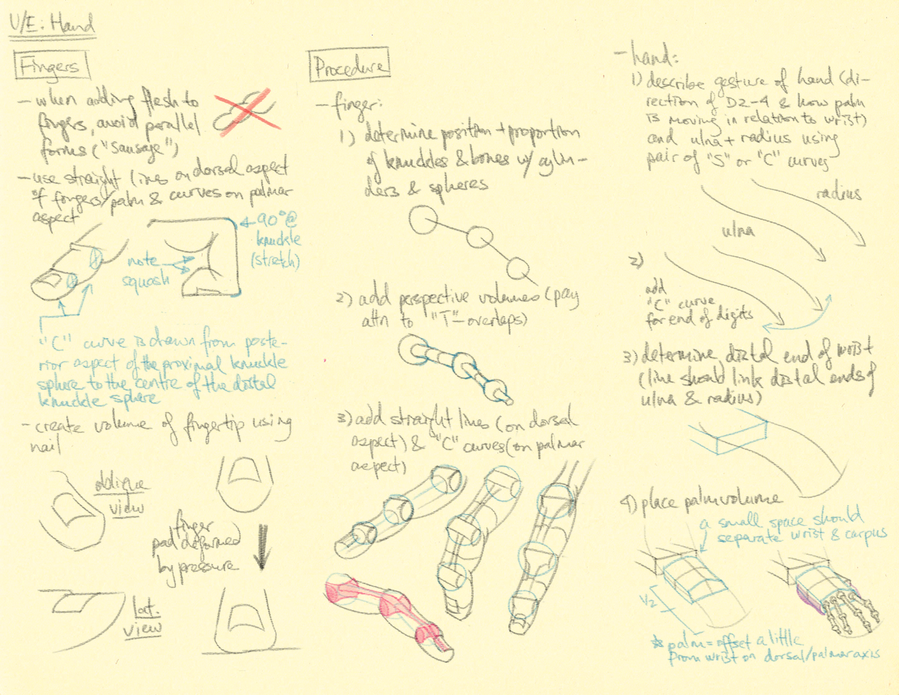 U/E: Hand
Fingers
- when adding flesh to
fingers, avoid parallel
forms ("sausage")
- use straight lines on dorsal aspect
of fingers/palm & curves on palmar
aspect
90° @
knuckle
(stretch)
note
squash
"C" curve is drawn from poste-
rior aspect of the proximal knuckle
sphere to the centre of the distal
knuckle sphere
- create volume of fingertip using
nail
oblique
view
finger
pad deformed
by pressure
lat.
view
Procedure
- finger:
1) determine position + proportion
of knuckles & bones w/ cylin-
ders & spheres
2) add perspective volumes (pay
attn to "T"-overlaps)
3) add straight lines (on dorsal
aspect) & "C" curves (on palmar
aspect)
- hand:
1) describe gesture of hand (di-
rection of D2-4 & how palm
is moving in relation to wrist)
and ulna + radius using
pair of "S" or "C" curves
radius
ulna
2)
add
"C" curve
for end of digits
3) determine distal end of wrist
(line should link distal ends of
ulna & radius)
4) place palm volume
a small space should
separate wrist & carpus
1/2
* palm = offset a little
from wrist on dorsal/palmar axis